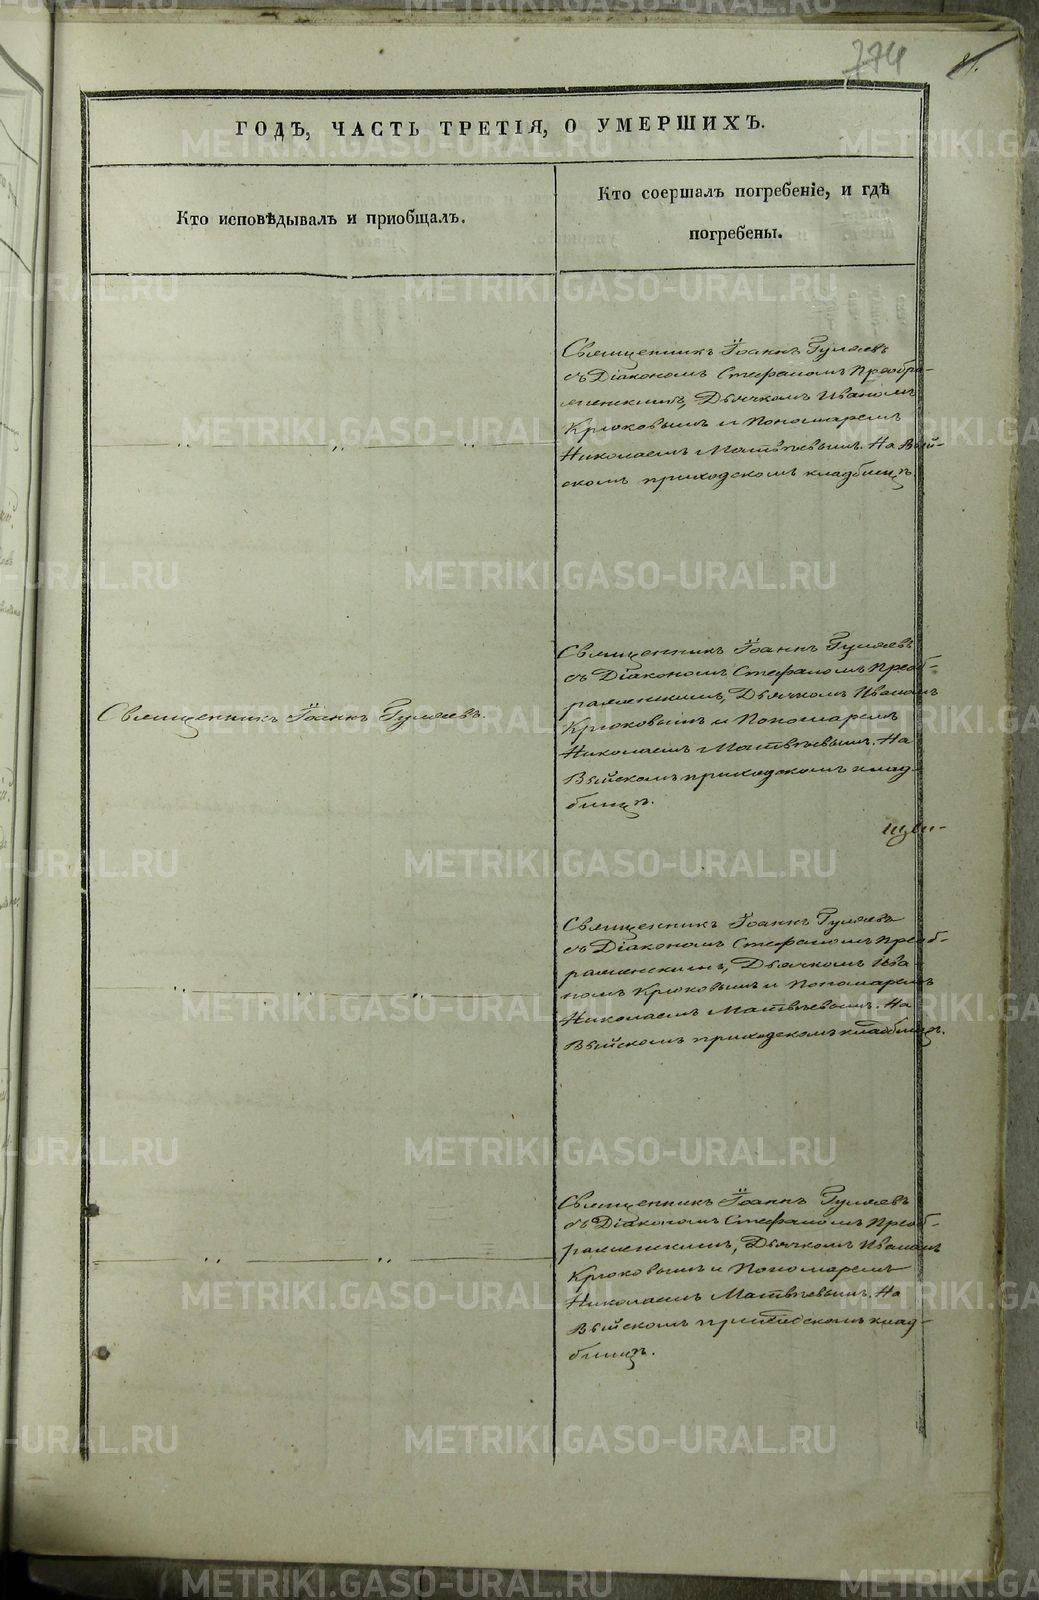 774
ГОДѢ, ЧАСТЬ ТРЕТІЯ, О УМЕРШИХЪ.
Кто исповѣдывалъ и приобщалъ.
Кто соершалъ погребеніе, и гдѣ
погребены.
Священникъ Іоаннъ Гуляевъ
съ Діакономъ Стефаномъ Преобра-
женскимъ, Дьячкомъ Иваномъ
Крюковымъ и Пономаремъ
Николаемъ Матвѣевымъ. На Вый-
скомъ приходскомъ кладбищѣ.
Священникъ Іоаннъ Гуляевъ.
Священникъ Іоаннъ Гуляевъ
съ Діакономъ Стефаномъ Преоб-
раженскимъ, Дьячкомъ Иваномъ
Крюковымъ и Пономаремъ
Николаемъ Матвѣевымъ. На
Выйскомъ приходскомъ клад-
бищѣ.
Священникъ Іоаннъ Гуляевъ
съ Діакономъ Стефаномъ Преоб-
раженскимъ, Дьячкомъ Ива-
номъ Крюковымъ и Пономаремъ
Николаемъ Матвѣевымъ. На
Выйскомъ приходскомъ кладбищѣ.
Священникъ Іоаннъ Гуляевъ
съ Діакономъ Стефаномъ Преоб-
раженскимъ, Дьячкомъ Иваномъ
Крюковымъ и Пономаремъ
Николаемъ Матвѣевымъ. На
Выйскомъ приходскомъ клад-
бищѣ.
METRIKI.GASO-URAL.RU